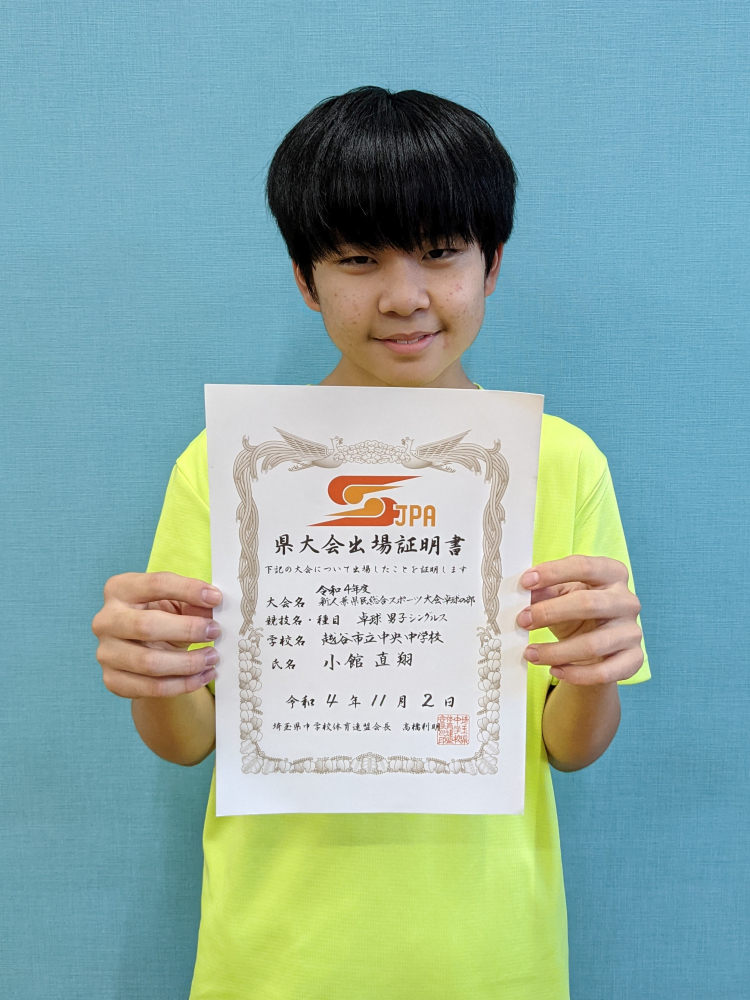 SJPA
県大会出場証明書
下記の大会について出場したことを証明します
令和4年度
大会名 新人兼県民総合スポーツ大会卓球の部
競技名・種目 卓球 男子シングルス
学校名 越谷市立中央中学校
氏名 小館 直翔
令和 4 年 11 月 2 日
埼玉県中学校体育連盟会長 高橋利明